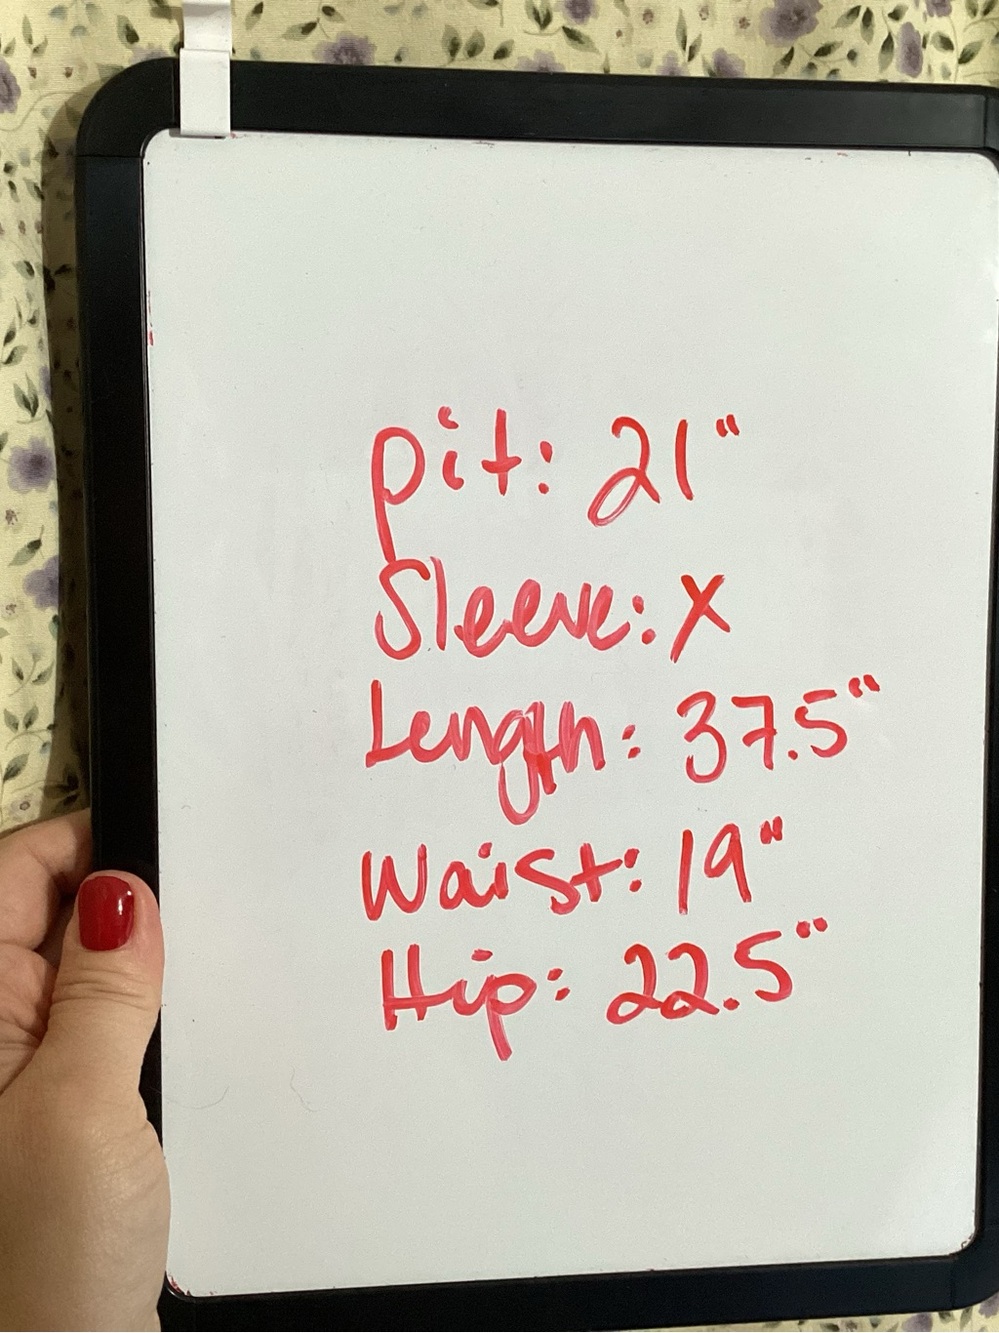 pit: 21"
Sleeve: X
Length: 37.5"
Waist: 19"
Hip: 22.5"